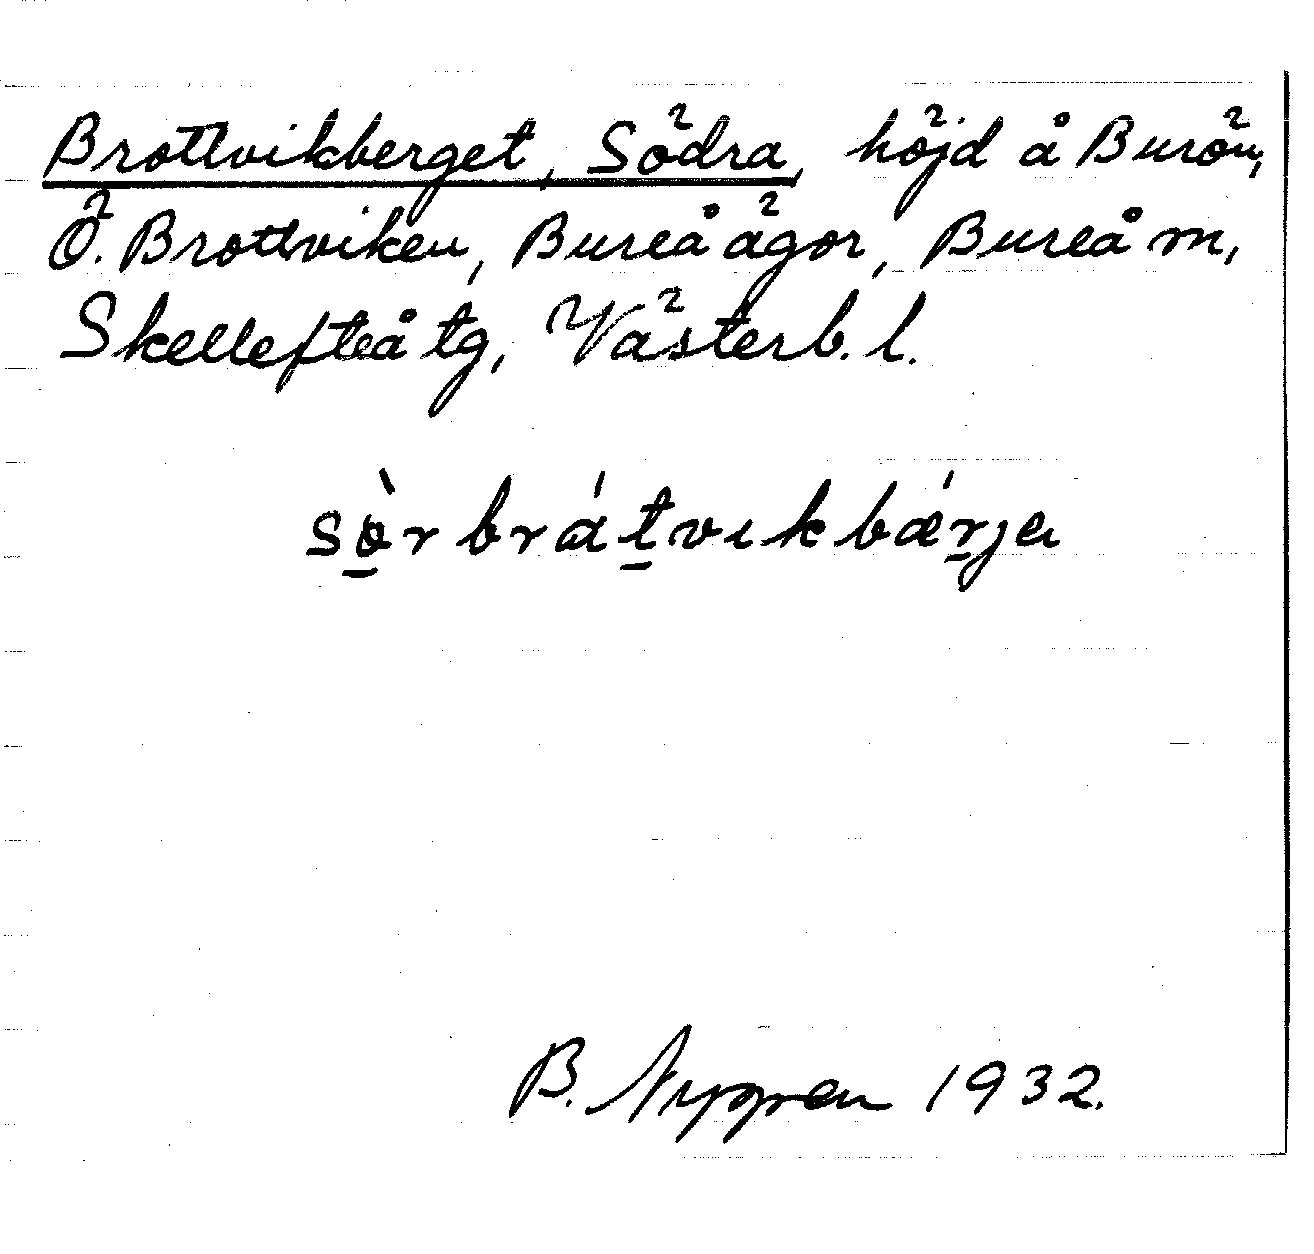 Brottvikberget, Södra, höjd å Burön,
Ö. Brottviken, Bureå ägor, Bureå m,
Skellefteå tg, Västerb. l.
sø̠̀rbrát̠vıkbǽr̠ja
B. Nygren 1932.